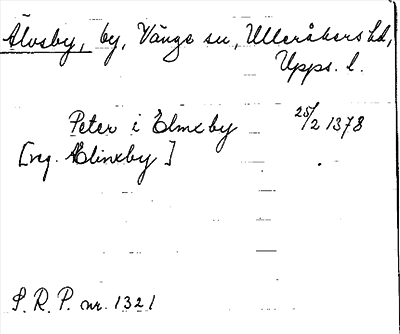 Älvsby, by, Vänge sn, Ulleråkers hd,
Upps. l.
Peter i Elmeby 25/2 1378
[reg. Elineby]
S.R.P. nr. 1321